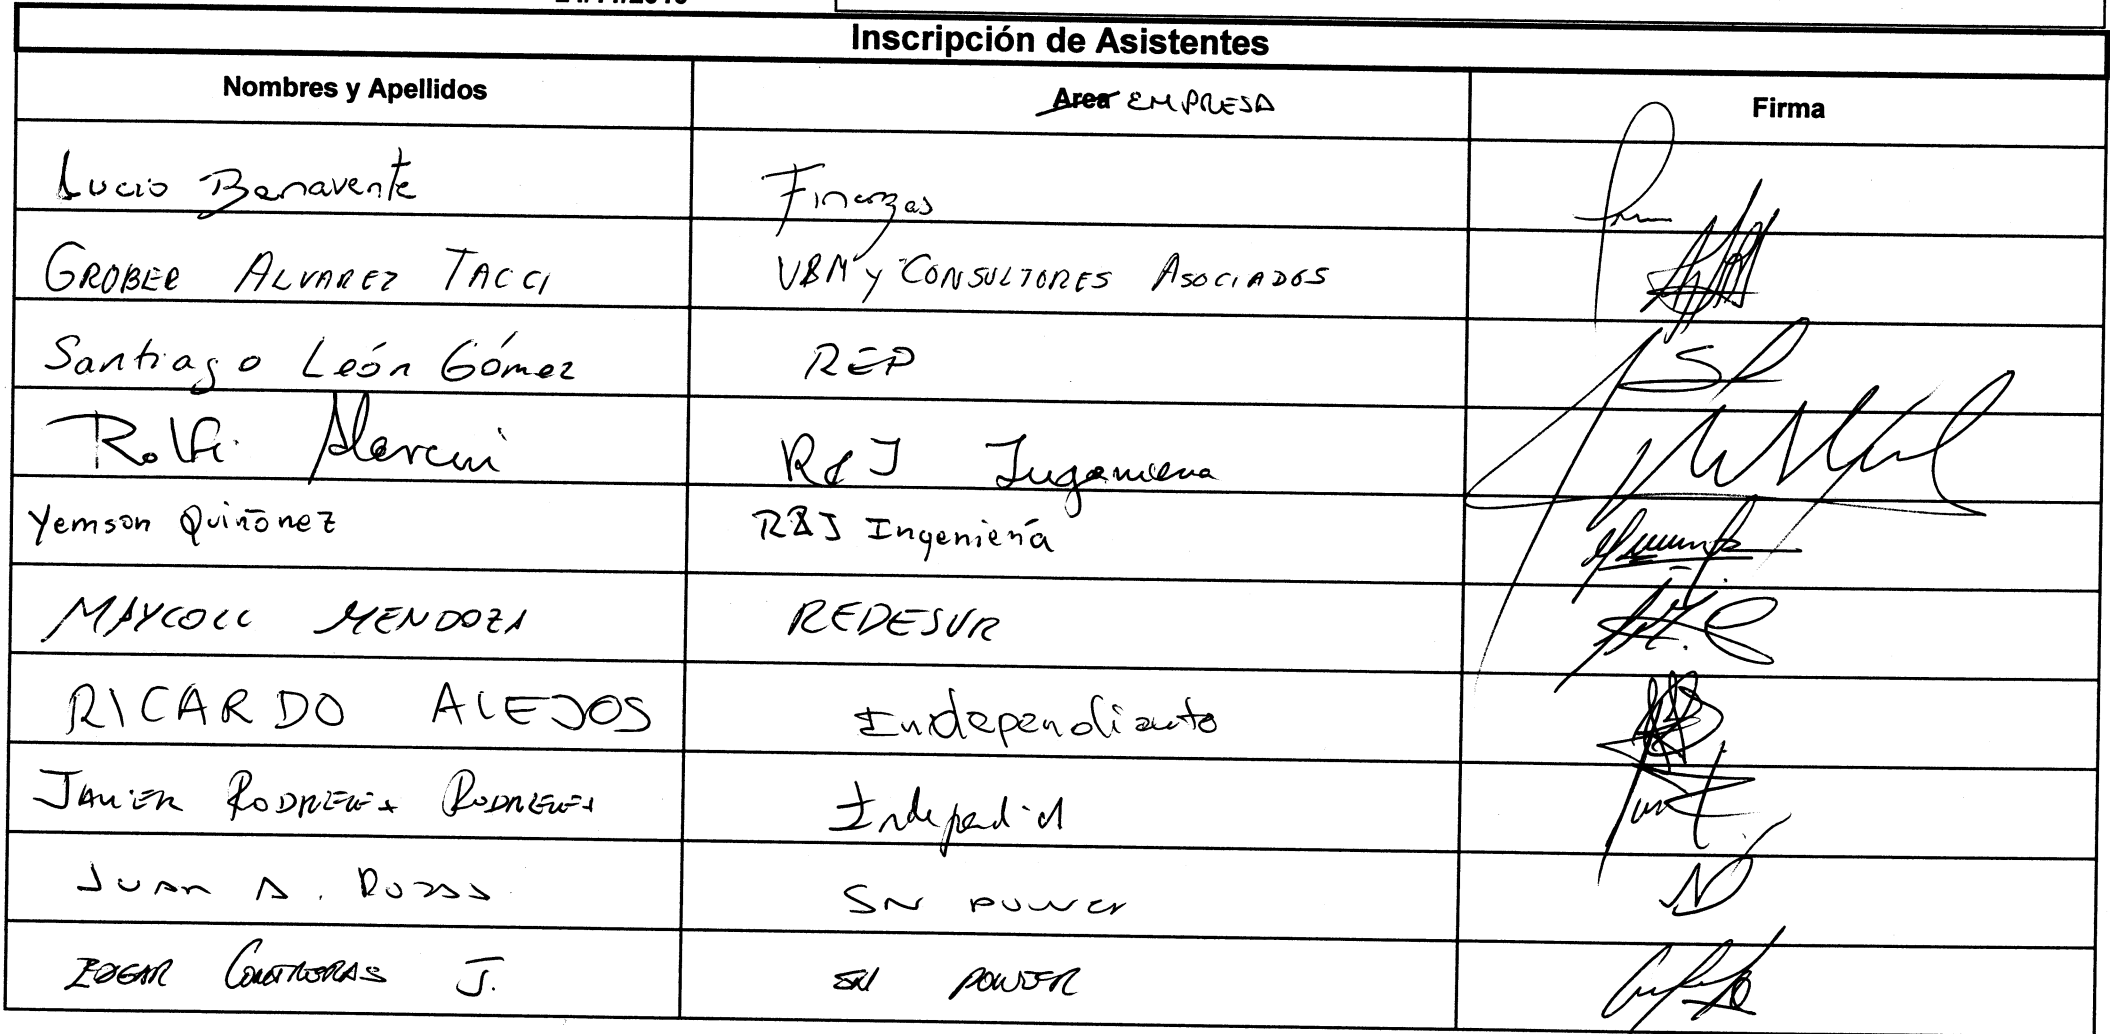 Inscripción de Asistentes
Nombres y Apellidos Area EMPRESA Firma
Lucio Benavente Finanzas
GROBER ALVAREZ TACCI VBM y CONSULTORES ASOCIADOS
Santiago León Gómez REP
R&J Ingenieria
Yemson Quiñonez R&J Ingeniería
MAYCOLL MENDOZA REDESUR
RICARDO ALEJOS Independiente
JAVIER RODRIGUEZ RODRIGUEZ
JUAN A. ROZAS SN POWER
EDGAR CONTRERAS J. SN POWER